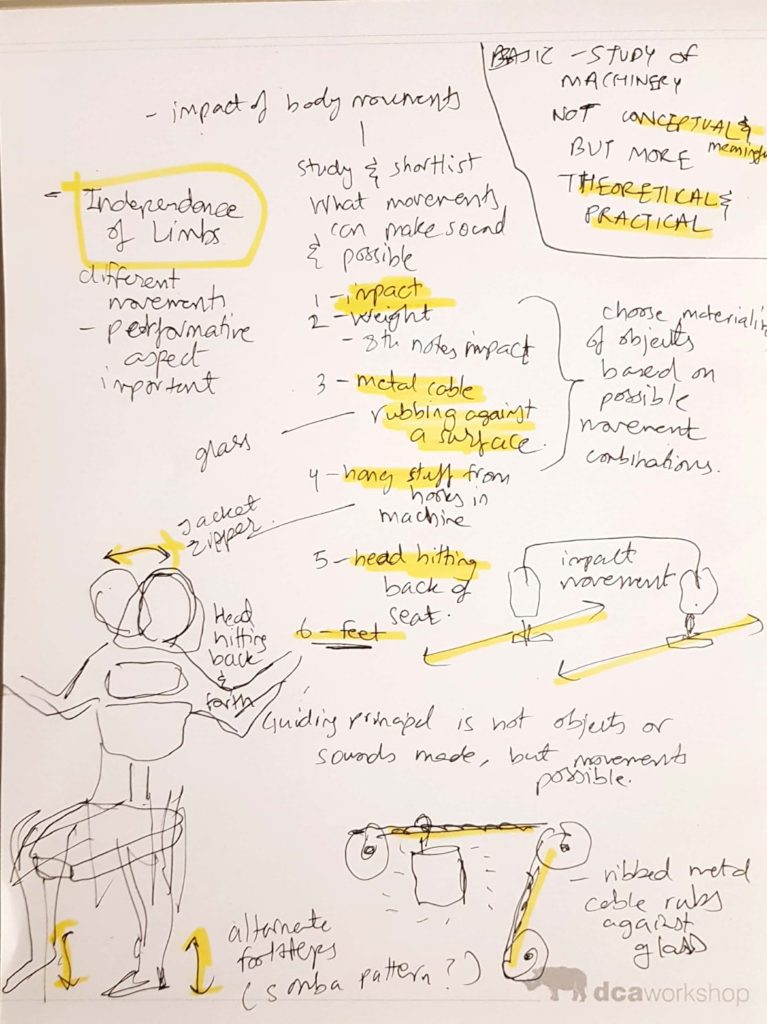 BASIC - STUDY OF
MACHINERY
NOT CONCEPTUAL &
meaningfu
BUT MORE
THEORETICAL &
PRACTICAL
- impact of body movements
study & shortlist
what movements
can make sound
& possible
1 - impact
2 - weight
- 8th notes impact
3 - metal cable
rubbing against
a surface.
4 - hang stuff from
hooks in
machine
5 - head hitting
back of
seat.
6 - feet
Independence
of Limbs
different
movements
- performative
aspect
important
choose materialit
of objects
based on
possible
movement
combinations.
glass
Jacket
zipper
Head
hitting
back
&
forth
impact
movement
Guiding principal is not objects or
sounds made, but movements
possible.
- ribbed metal
cable rubs
against
glass
alternate
footsteps
(samba pattern?)
dcaworkshop